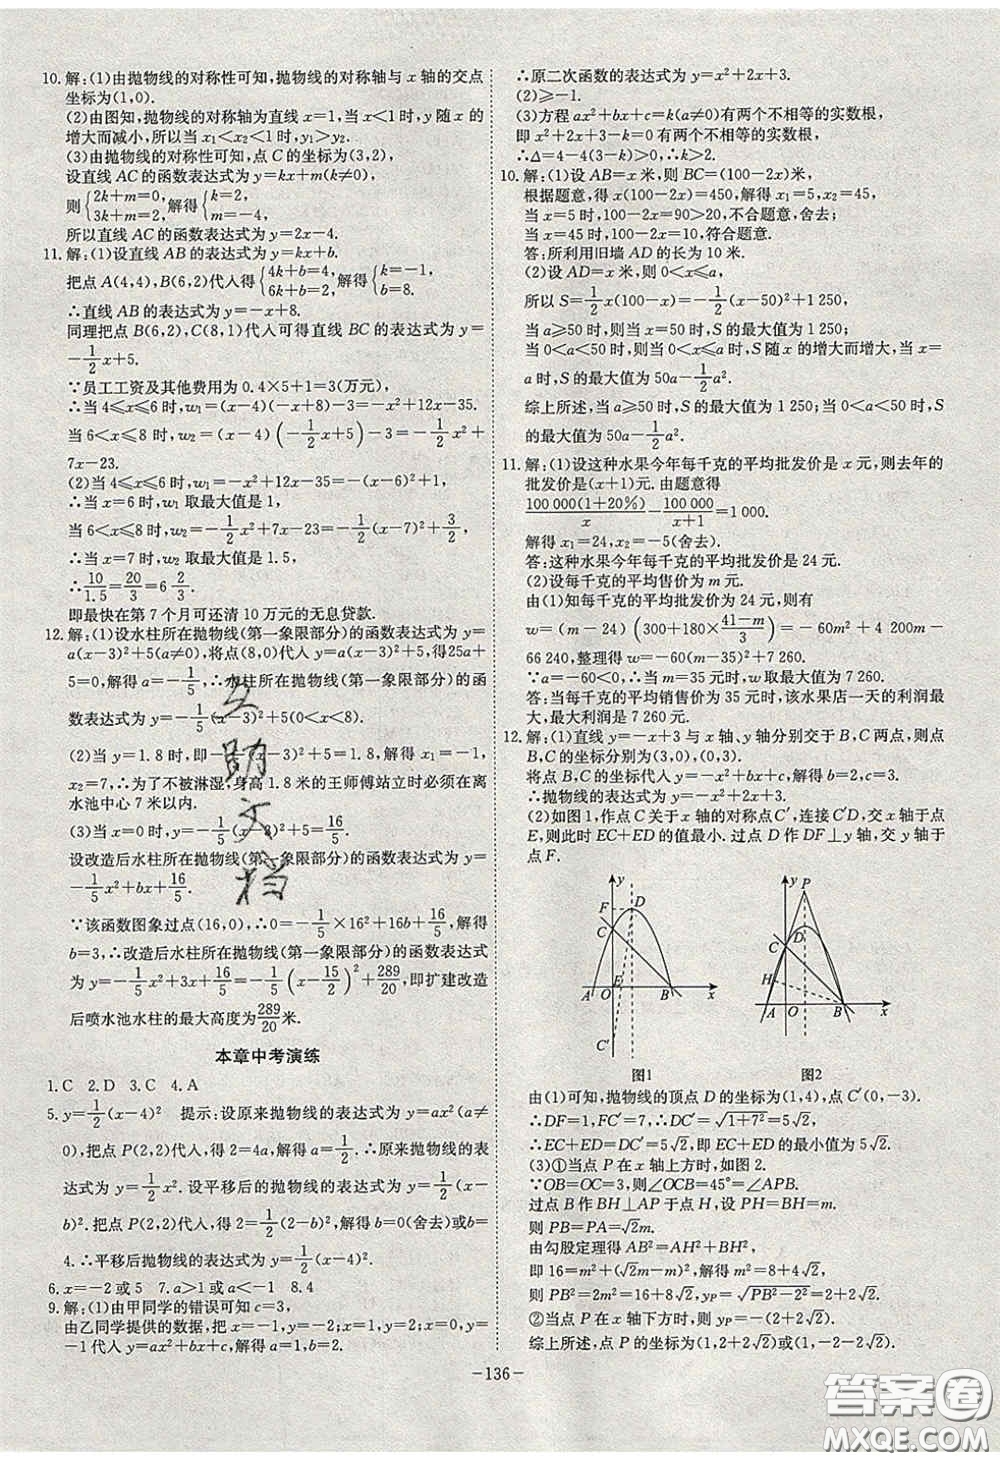 10.解:(1)由抛物线的对称性可知,抛物线的对称轴与 x 轴的交点
坐标为(1,0).
(2)由图知,抛物线的对称轴为直线 x=1,当 x<1时,y 随 x 的
增大而减小,所以当 x₁<x₂<1时,y₁>y₂.
(3)由抛物线的对称性可知,点 C 的坐标为(3,2),
设直线 AC 的函数表达式为 y=kx+m(k≠0),
则{2k+m=0, 3k+m=2,解得{k=2, m=-4,
所以直线 AC 的函数表达式为 y=2x-4.
11.解:(1)设直线 AB 的表达式为 y=kx+b.
把点 A(4,4),B(6,2)代入得{4k+b=4, 6k+b=2,解得{k=-1, b=8.
∴直线 AB 的表达式为 y=-x+8.
同理把点 B(6,2),C(8,1)代入可得直线 BC 的表达式为 y=
-1/2x+5.
∵员工工资及其他费用为 0.4×5+1=3(万元),
∴当 4≤x≤6 时,w₁=(x-4)(-x+8)-3=-x²+12x-35.
当 6<x≤8 时,w₂=(x-4)(-1/2x+5)-3=-1/2x²+
7x-23.
(2)当 4≤x≤6 时,w₁=-x²+12x-35=-(x-6)²+1,
∴当 x=6 时,w₁取最大值是 1,
当 6<x≤8 时,w₂=-1/2x²+7x-23=-1/2(x-7)²+3/2,
∴当 x=7 时,w₂取最大值是 1.5,
∴10/1.5=20/3=6 2/3.
即最快在第 7 个月可还清 10 万元的无息贷款.
12.解:(1)设水柱所在抛物线(第一象限部分)的函数表达式为 y=
a(x-3)²+5(a≠0),将点(8,0)代入 y=a(x-3)²+5,得25a+
5=0,解得 a=-1/5,∴水柱所在抛物线(第一象限部分)的函
数表达式为 y=-1/5(x-3)²+5(0<x<8).
(2)当 y=1.8时,即-1/5(x-3)²+5=1.8,解得 x₁=-1,
x₂=7,∴为了不被淋湿,身高 1.8 米的王师傅站立时必须在离
水池中心 7 米以内.
(3)当 x=0 时,y=-1/5(x-3)²+5=16/5.
设改造后水柱所在抛物线(第一象限部分)的函数表达式为 y=
-1/5x²+bx+16/5.
∵该函数图象过点(16,0),∴0=-1/5×16²+16b+16/5,解得
b=3,∴改造后水柱所在抛物线(第一象限部分)的函数表达式
为 y=-1/5x²+3x+16/5=-1/5(x-15/2)²+289/20,即扩建改造
后喷水池水柱的最大高度为289/20米.
本章中考演练
1.C 2.D 3.C 4.A
5.y=1/2(x-4)² 提示:设原来抛物线的表达式为 y=ax²(a≠
0),把点 P(2,2)代入得,2=4a,解得 a=1/2,∴原来抛物线的表
达式为 y=1/2x².设平移后的抛物线的表达式为 y=1/2(x-
b)².把点 P(2,2)代入,得 2=1/2(2-b)²,解得 b=0(舍去)或 b=
4.∴平移后抛物线的表达式为 y=1/2(x-4)².
6.x=-2 或 5 7.a>1 或 a<-1 8.4
9.解:(1)由甲同学的错误可知 c=3,
由乙同学提供的数据,把 x=-1,y=-2;x=1,y=2,c=
-1代入 y=ax²+bx+c,解得 a=1,b=2.
∴原二次函数的表达式为 y=x²+2x+3.
(2)≥-1.
(3)方程 ax²+bx+c=k(a≠0)有两个不相等的实数根,
即 x²+2x+3-k=0 有两个不相等的实数根,
∴Δ=4-4(3-k)>0,∴k>2.
10.解:(1)设 AB=x 米,则 BC=(100-2x)米,
根据题意,得 x(100-2x)=450,解得 x₁=5,x₂=45,
当 x=5 时,100-2x=90>20,不合题意,舍去;
当 x=45 时,100-2x=10,符合题意.
答:所利用旧墙 AD 的长为 10 米.
(2)设 AD=x 米,则 0<x≤a,
所以 S=1/2x(100-x)=-1/2(x-50)²+1 250,
当 a≥50 时,则 x=50 时,S 的最大值为 1 250;
当 0<a<50 时,则当 0<x≤a 时,S 随 x 的增大而增大,当 x=
a 时,S 的最大值为 50a-1/2a².
综上所述,当 a≥50 时,S 的最大值为 1 250;当 0<a<50 时,S
的最大值为50a-1/2a².
11.解:(1)设这种水果今年每千克的平均批发价是 x 元,则去年的
批发价是(x+1)元.由题意得
100 000(1+20%)/x-100 000/(x+1)=1 000.
解得 x₁=24,x₂=-5(舍去).
答:这种水果今年每千克的平均批发价是 24 元.
(2)设每千克的平均售价为 m 元.
由(1)知每千克的平均批发价是 24 元,则有
w=(m-24)(300+180×(41-m)/3)=-60m²+4 200m-
66 240,整理得 w=-60(m-35)²+7 260.
∵a=-60<0,∴当 m=35 元时,w 取最大值为 7 260.
答:当每千克的平均销售价为 35 元时,该水果店一天的利润最
大,最大利润是 7 260 元.
12.解:(1)直线 y=-x+3 与 x 轴、y轴分别交于 B,C 两点,则点
B,C 的坐标分别为(3,0),(0,3).
将点 B,C 的坐标代入 y=-x²+bx+c,解得 b=2,c=3.
∴抛物线的表达式为 y=-x²+2x+3.
(2)如图 1,作点 C 关于 x 轴的对称点 C′,连接 C′D,交 x 轴于点
E,则此时 EC+ED 的值最小.过点 D 作 DF⊥y 轴,交 y 轴于
点 F.
y F D C A O E B x C′
y P C D H A O B x
图1 图2
由(1)可知,抛物线的顶点 D 的坐标为(1,4),点 C′(0,-3).
∴DF=1,FC′=7,∴DC′=√(1+7²)=5√2,
∴EC+ED=DC′=5√2,即 EC+ED 的最小值为 5√2.
(3)①当点 P 在 x 轴上方时,如图 2.
∵OB=OC=3,则∠OCB=45°=∠APB.
过点 B 作 BH⊥AP 于点 H,设 PH=BH=m.
则 PB=PA=√2m.
由勾股定理得 AB²=AH²+BH²,
即 16=m²+(√2m-m)²,解得 m²=8+4√2,
则 PB²=2m²=16+8√2,yP=√(PB²-2²)=2+2√2.
②当点 P 在 x 轴下方时,则 yP=-(2+2√2).
综上所述,点 P 的坐标为(1,2+2√2)或(1,-2-2√2).
-136-
答案卷
MXQE.COM